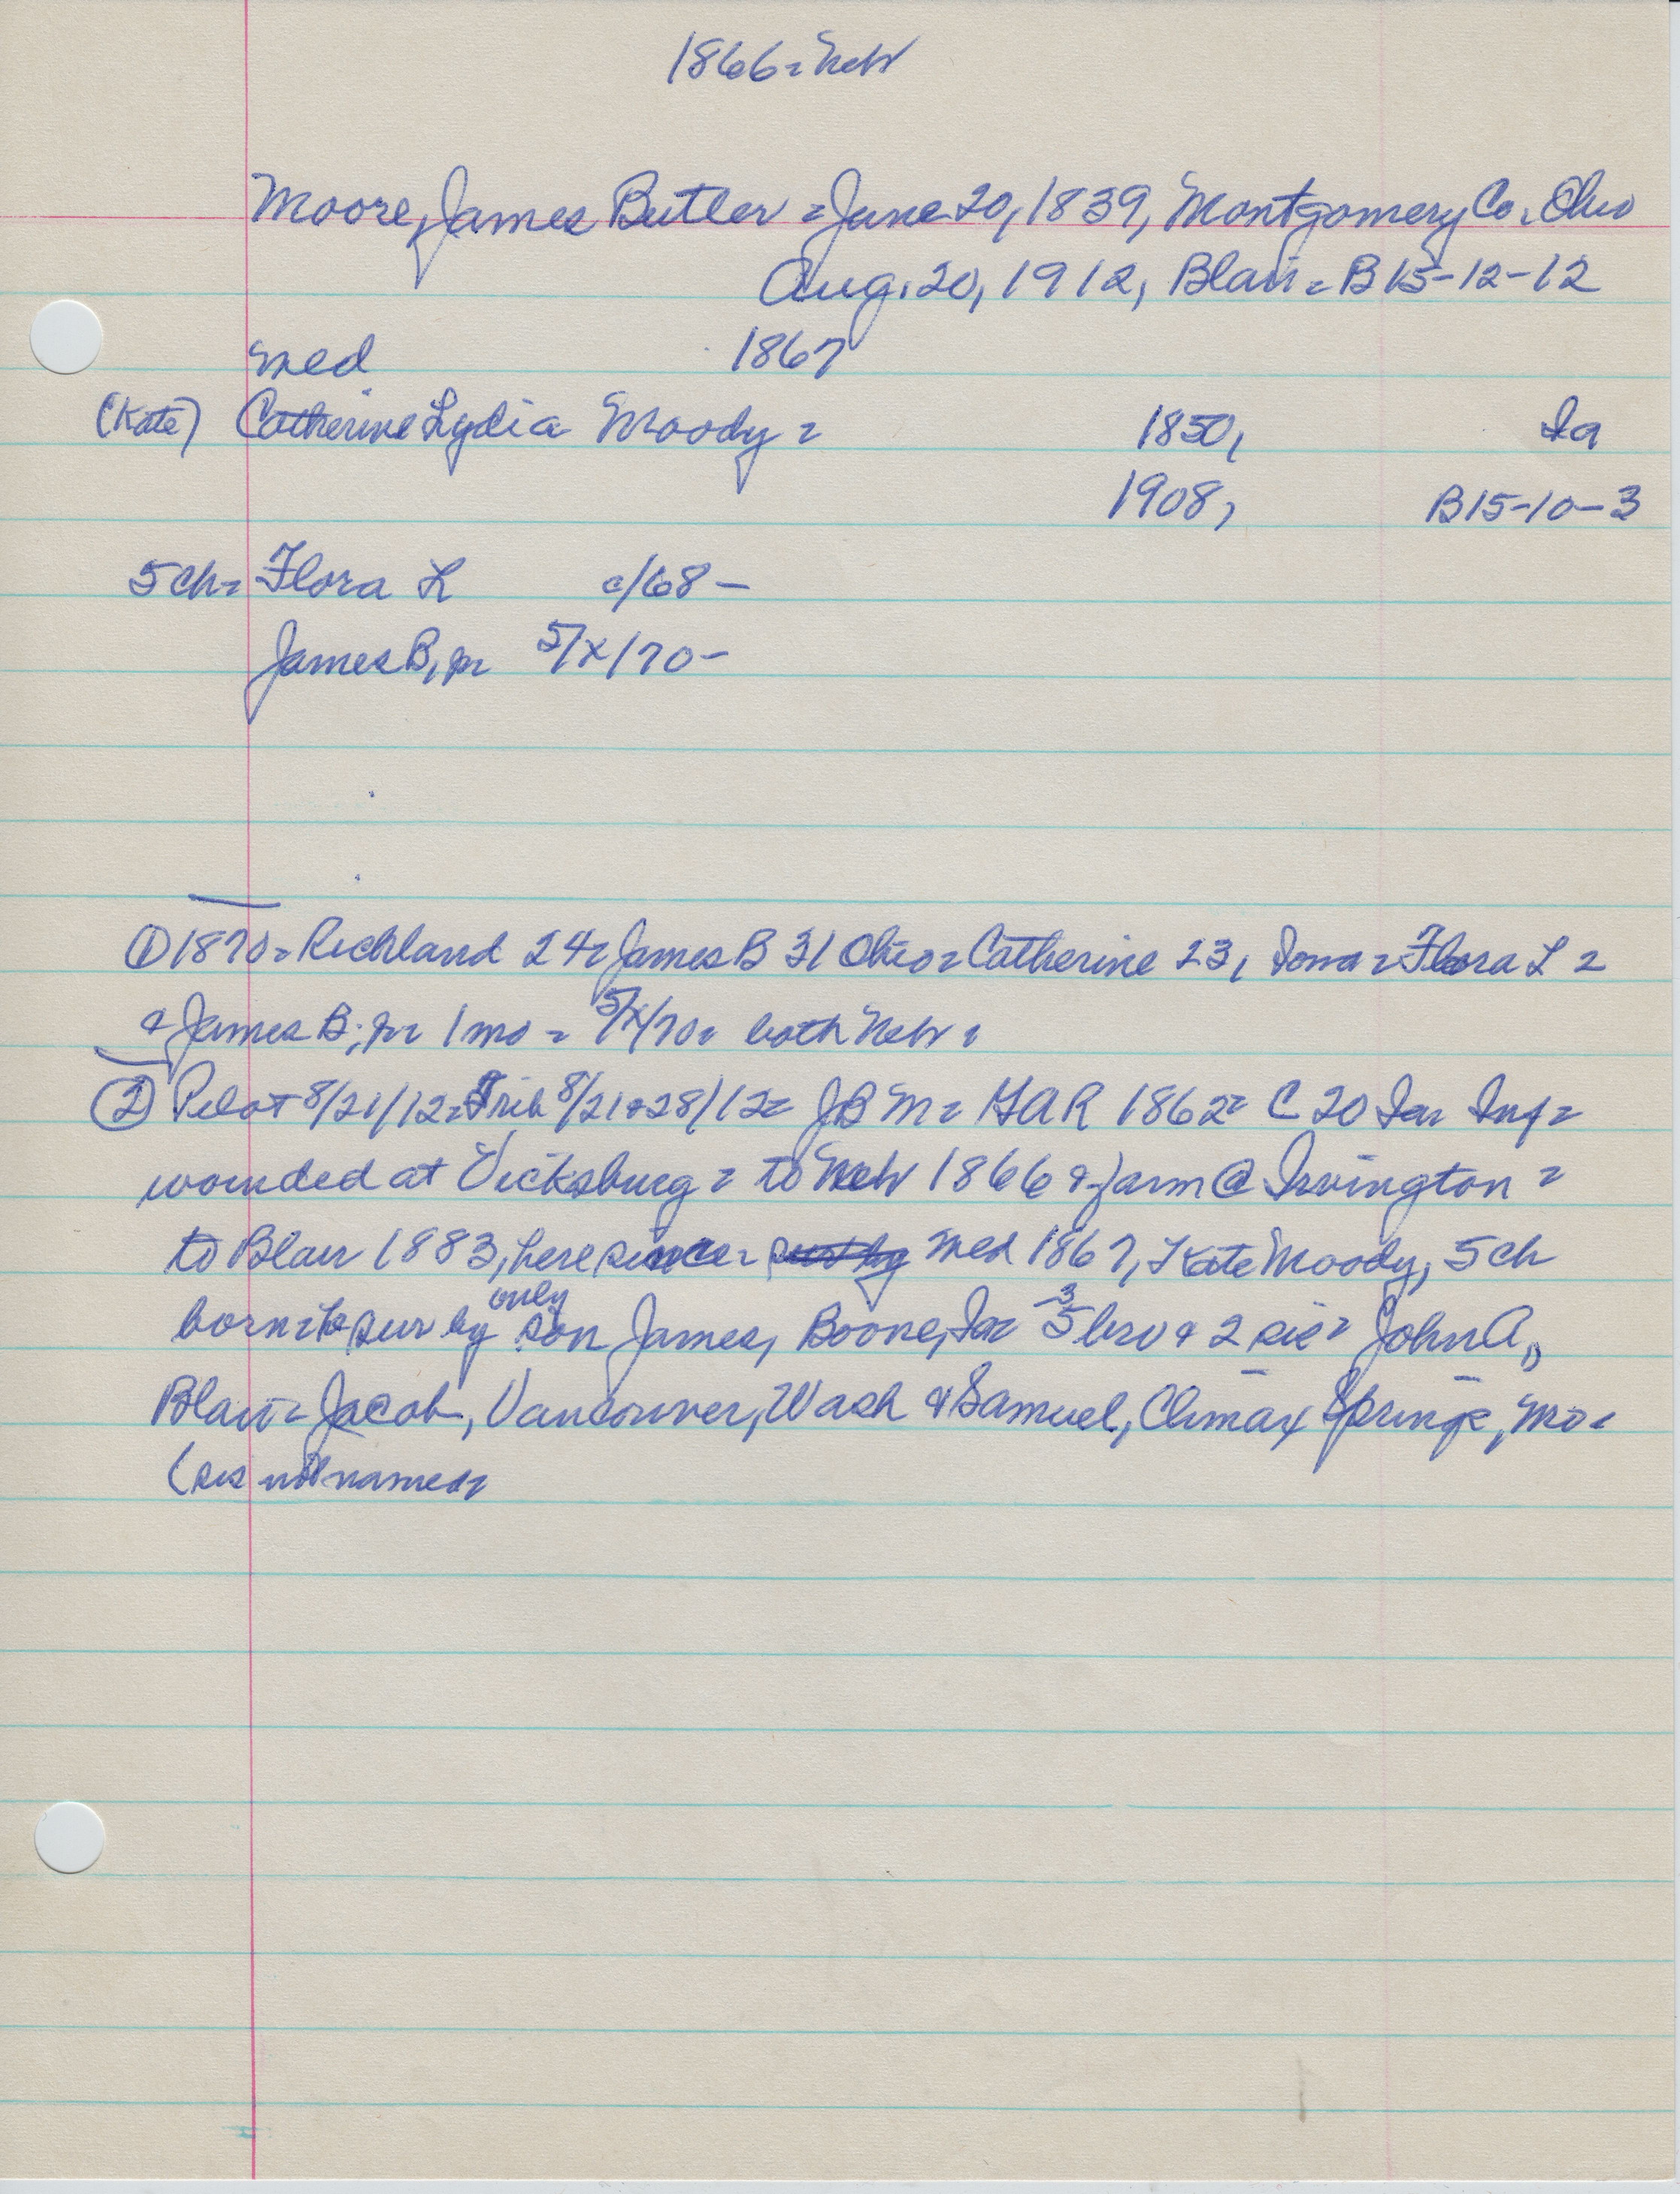 1866 = Neb
Moore, James Butler = June 20, 1839, Montgomery Co. Ohio
Aug. 20, 1912, Blair = B15-12-12
med 1867
(Kate) Catherine Lydia Moody = 1850, Ia
1908, B15-10-3
5 ch = Flora L c/68 -
James B, jr 5/x/70 -
① 1870 = Richland 24 = James B 31 Ohio = Catherine 23, Iowa = Flora L 2
& James B, jr 1 mo = 5/x/70 = both Neb =
② Pilot 8/21/12 = Trib 8/21 & 28/12 = JBM = GAR 1862 = C 20 Ia Inf =
wounded at Vicksburg = to Neb 1866 & farm @ Irvington =
to Blair 1883, here since = med 1867, Kate Moody, 5 ch
born = sur by only son James, Boone, Ia = 3 bro & 2 sis = John A,,
Blair = Jacob, Vancouver, Wash & Samuel, Climax Springs, Mo =
(sis not named =